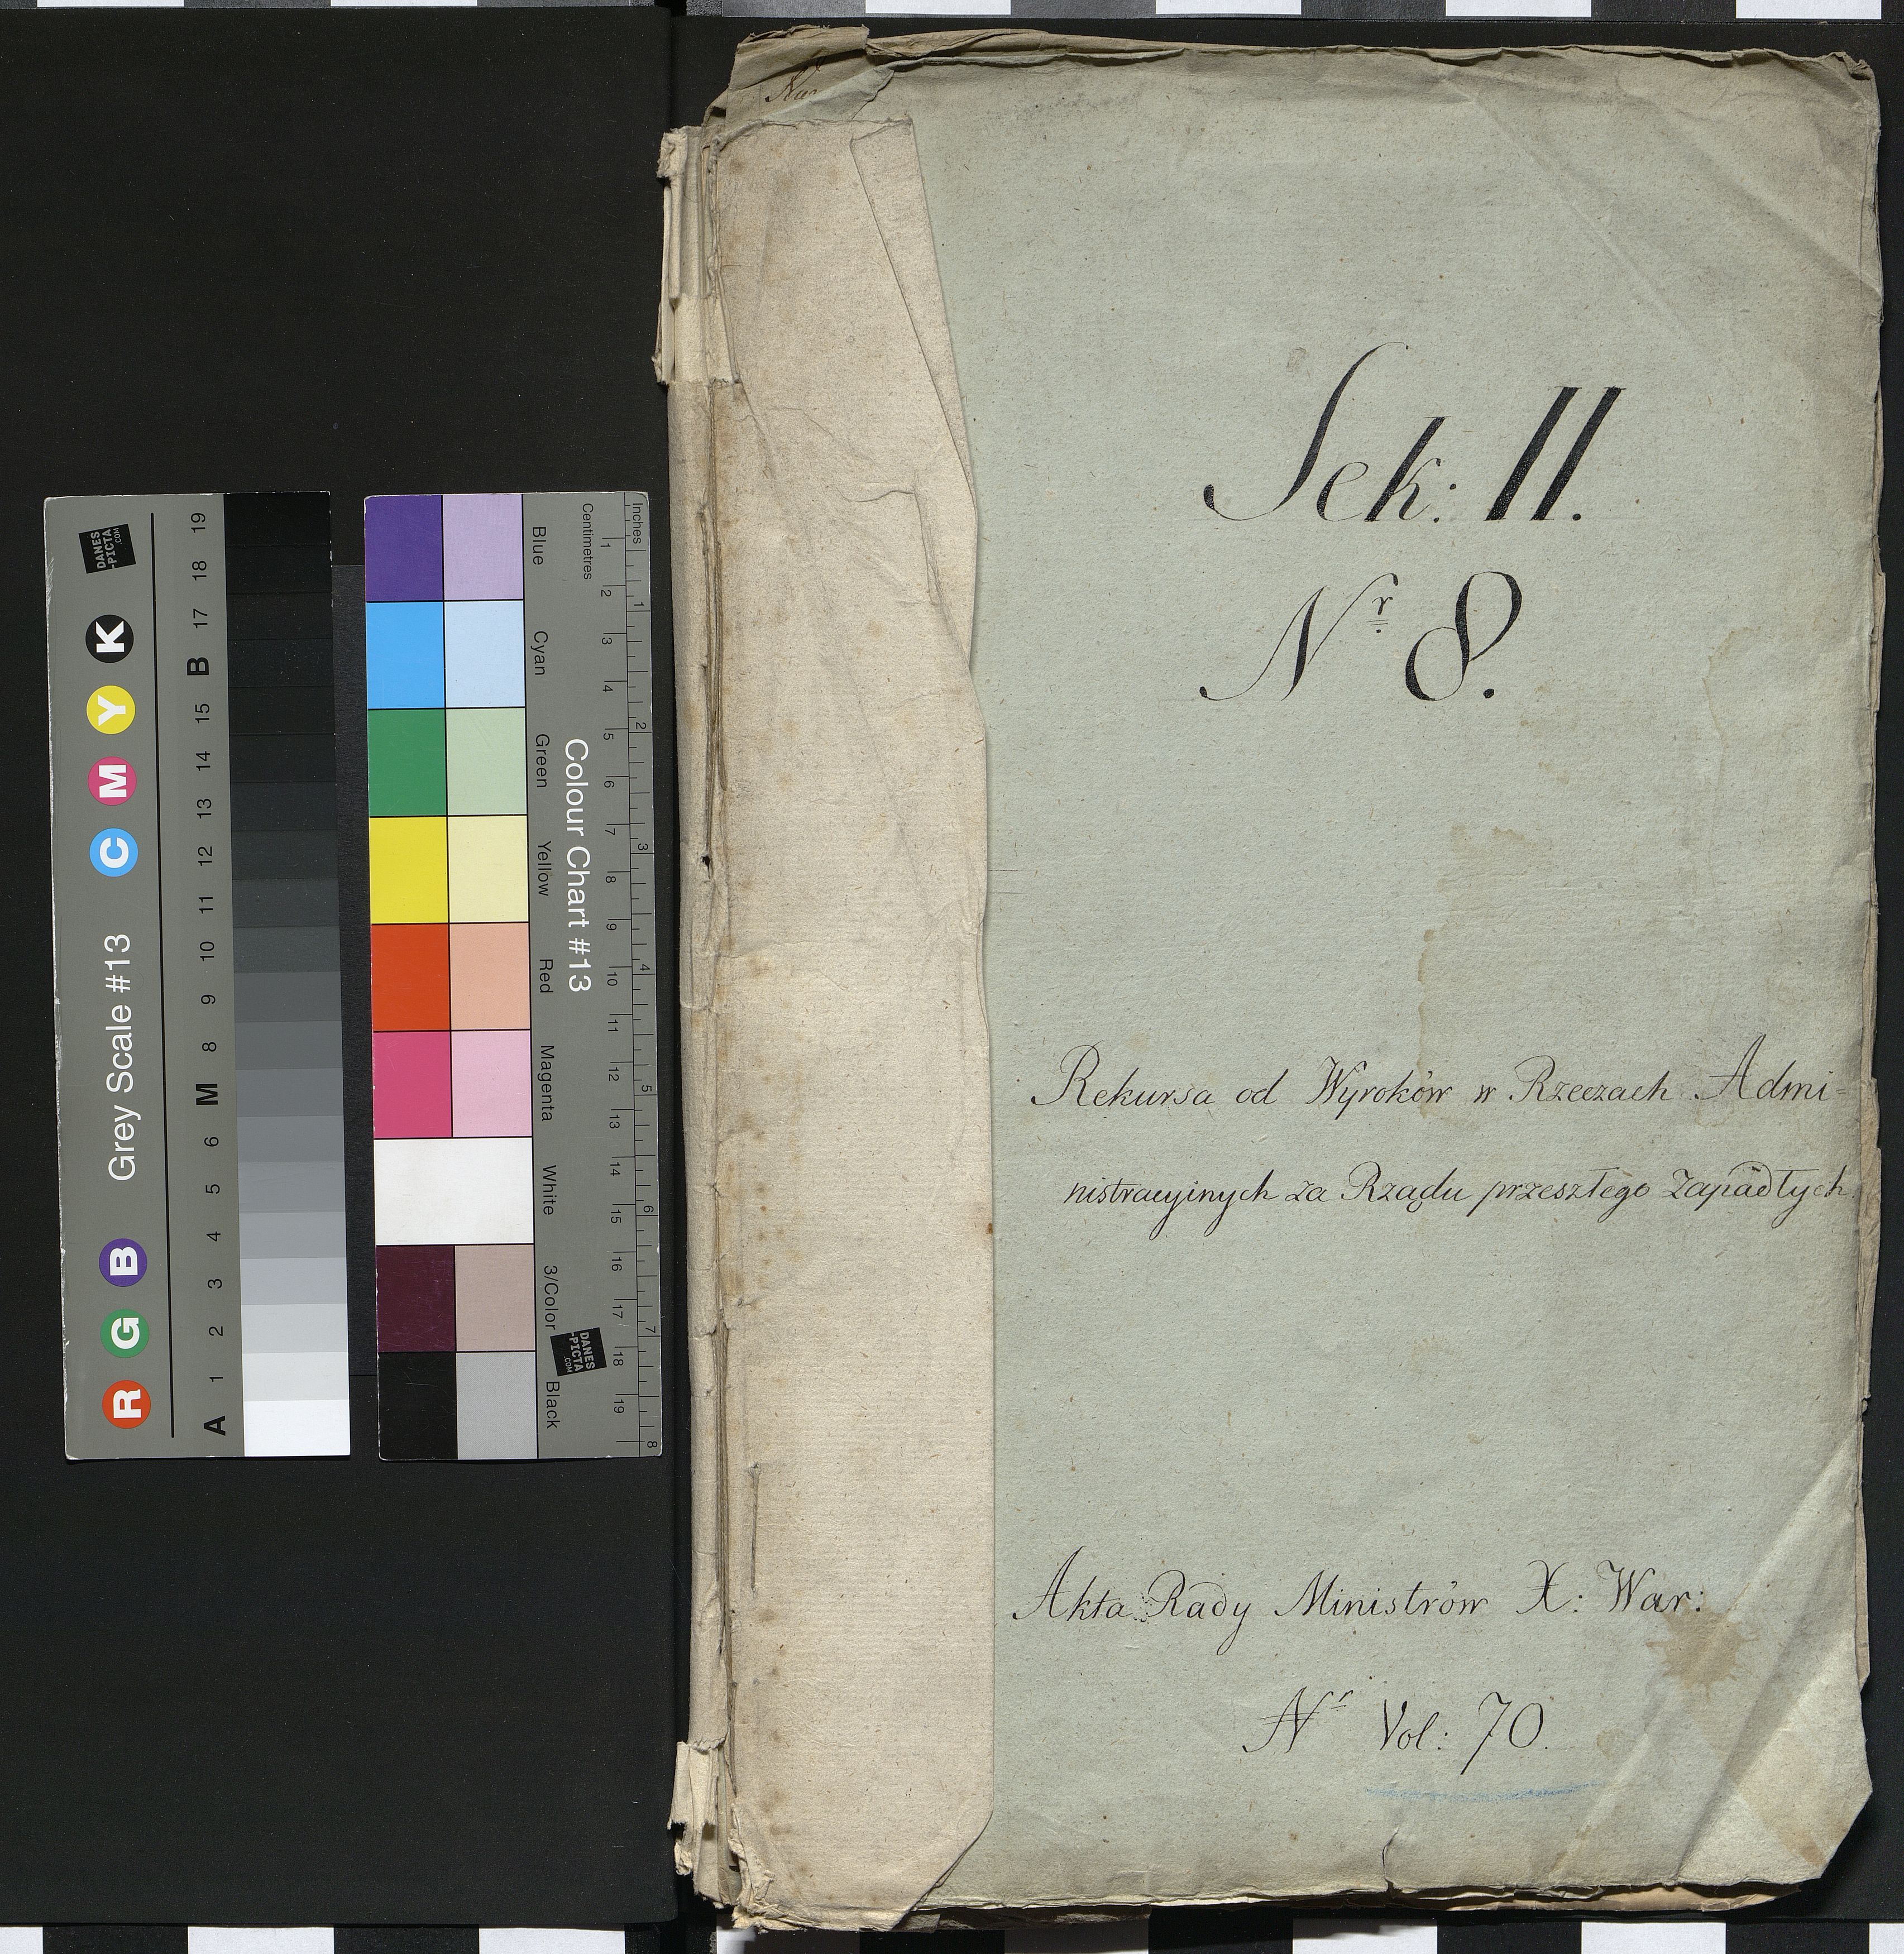 Sek: II.
Nr 8.
Rekursa od Wyroków w Rzeczach Admi=
nistracyinych za Rządu przeszłego zapadłych.
Akta Rady Ministrów X: War:
Nr Vol: 70.
Grey Scale #13
R G B C M Y K
A 1 2 3 4 5 6 M 8 9 10 11 12 13 14 15 B 17 18 19
DANES
-PICTA
.COM
Colour Chart #13
Blue Cyan Green Yellow Red Magenta White 3/Color Black
Centimetres
1 2 3 4 5 6 7 8 9 10 11 12 13 14 15 16 17 18 19
Inches
1 2 3 4 5 6 7 8
DANES
-PICTA
.COM